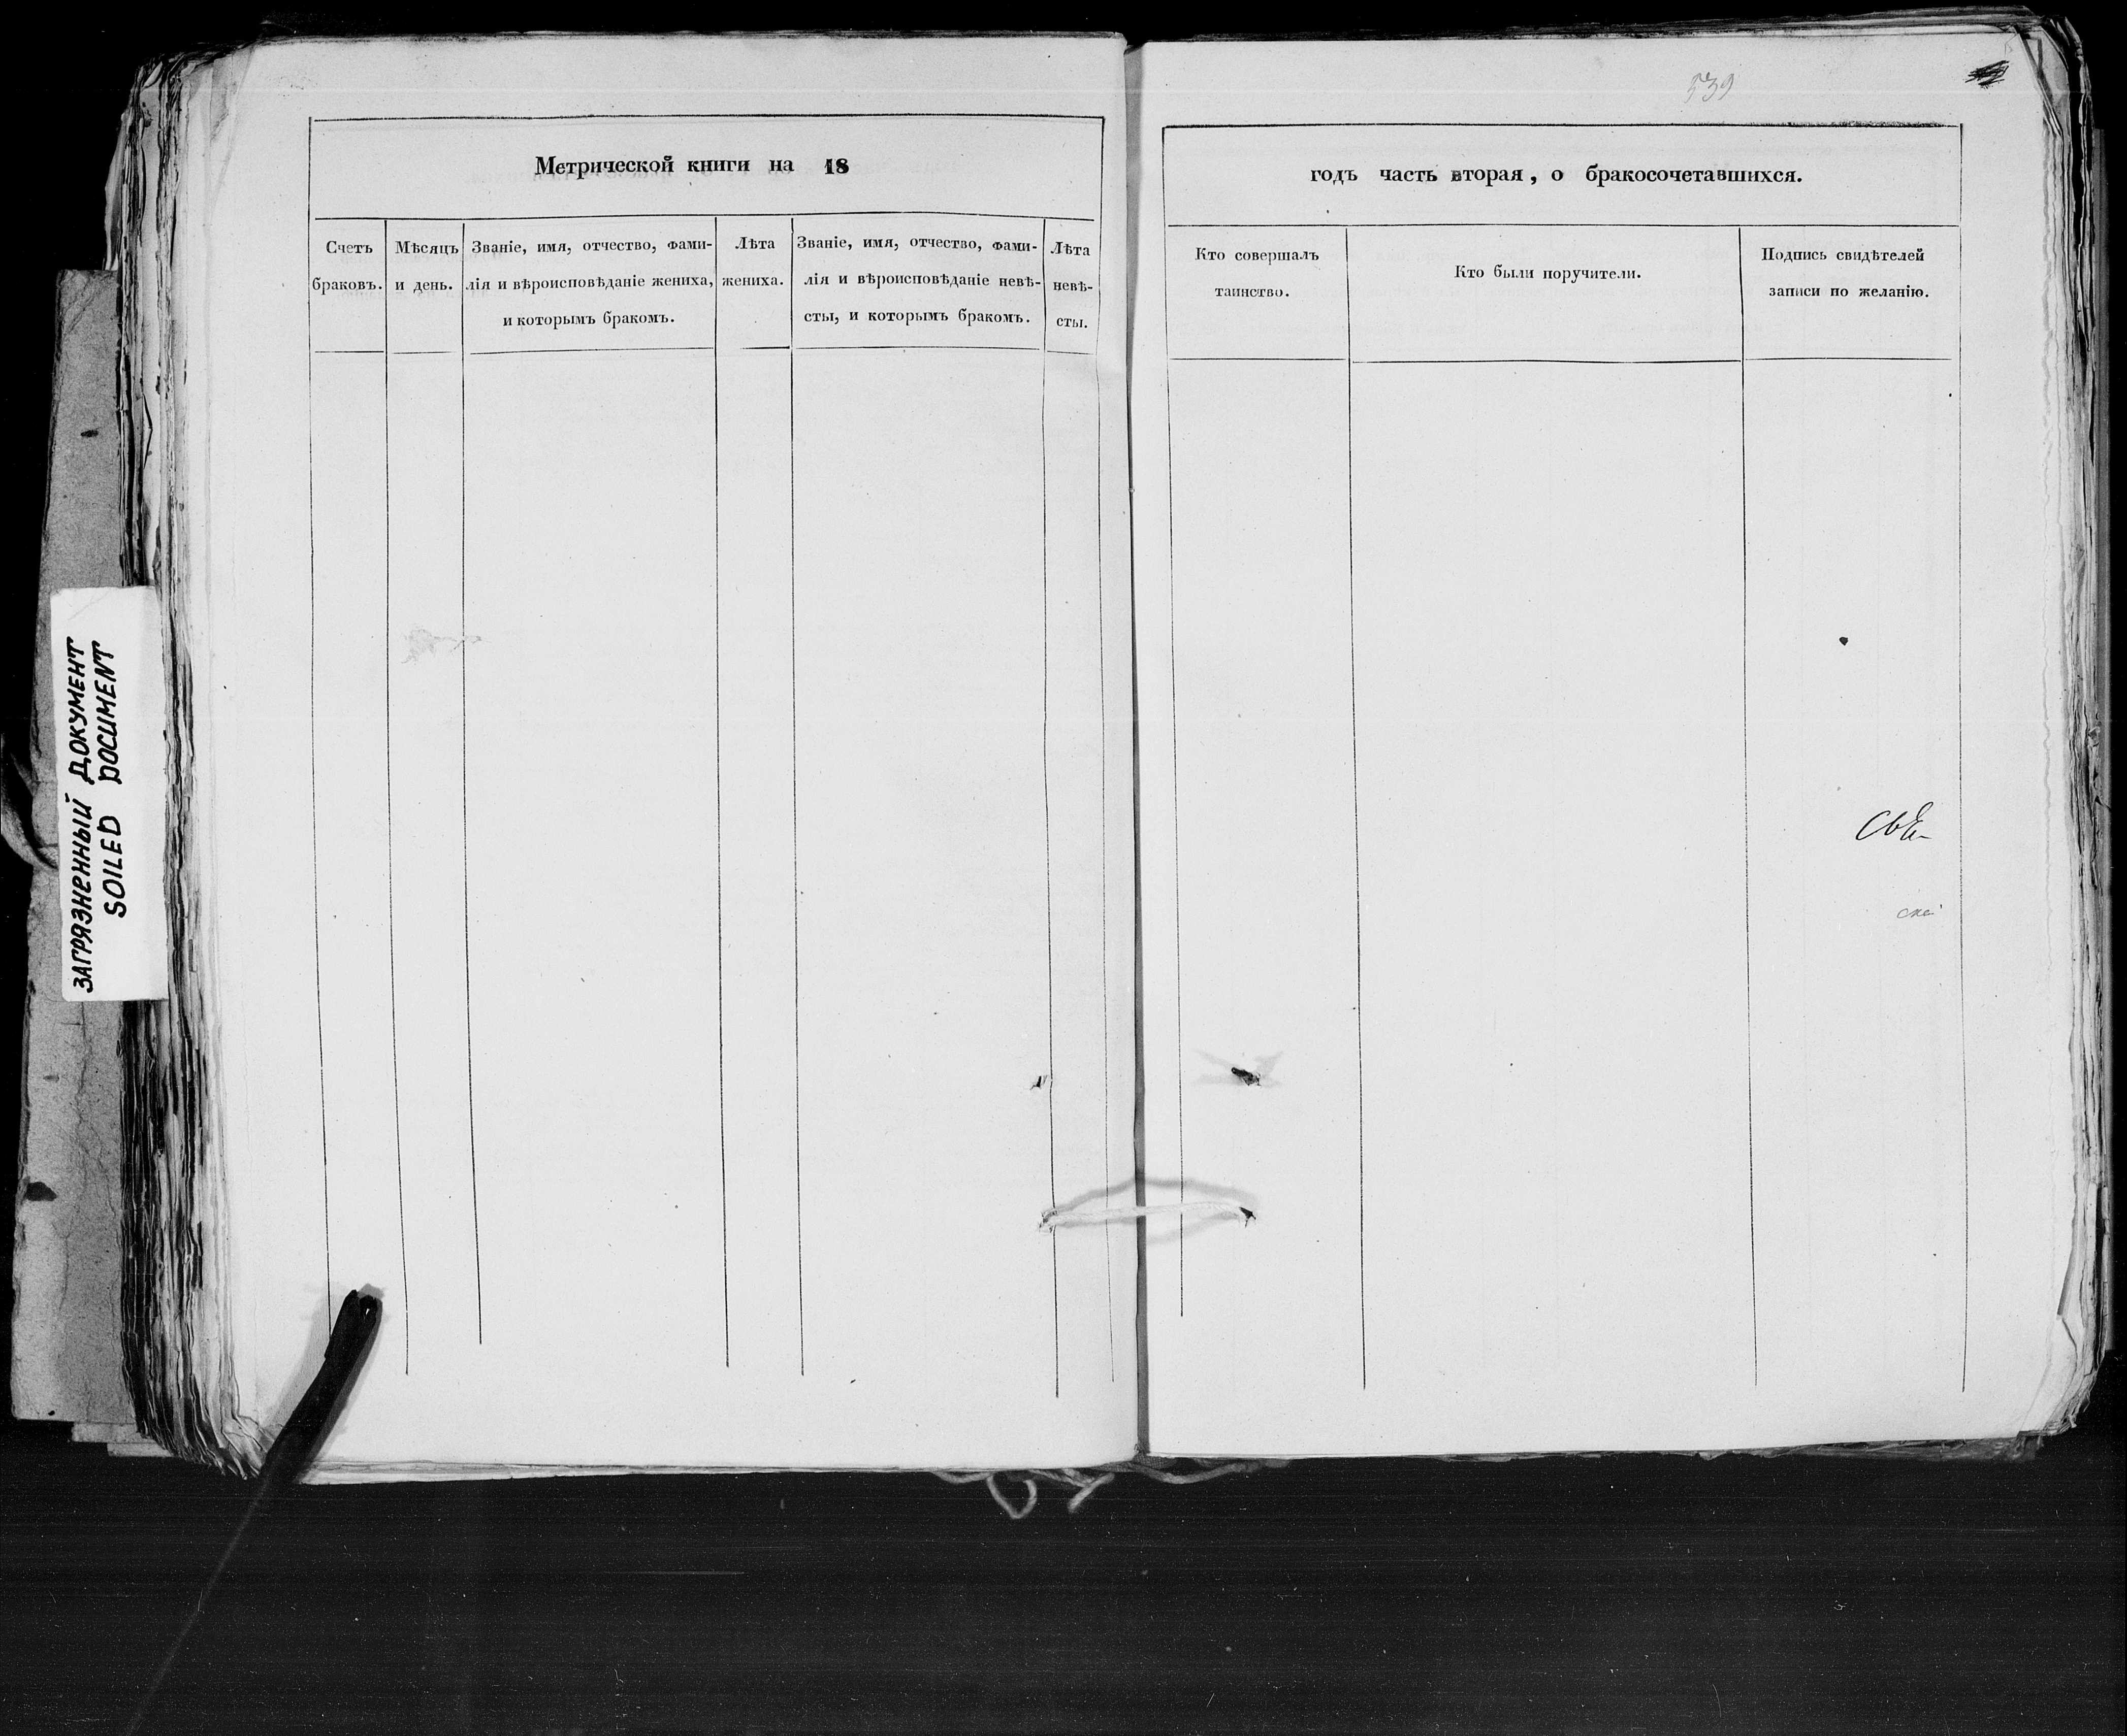 539
Метрической книги на 18
годъ часть вторая, о бракосочетавшихся.
Счетъ
браковъ.
Мѣсяцъ
и день.
Званіе, имя, отчество, фами-
лія и вѣроисповѣданіе жениха,
и которымъ бракомъ.
Лѣта
жениха.
Званіе, имя, отчество, фами-
лія и вѣроисповѣданіе невѣ-
сты, и которымъ бракомъ.
Лѣта
невѣ-
сты.
Кто совершалъ
таинство.
Кто были поручители.
Подпись свидѣтелей
записи по желанію.
ЗАГРЯЗНЕННЫЙ ДОКУМЕНТ
SOILED DOCUMENT